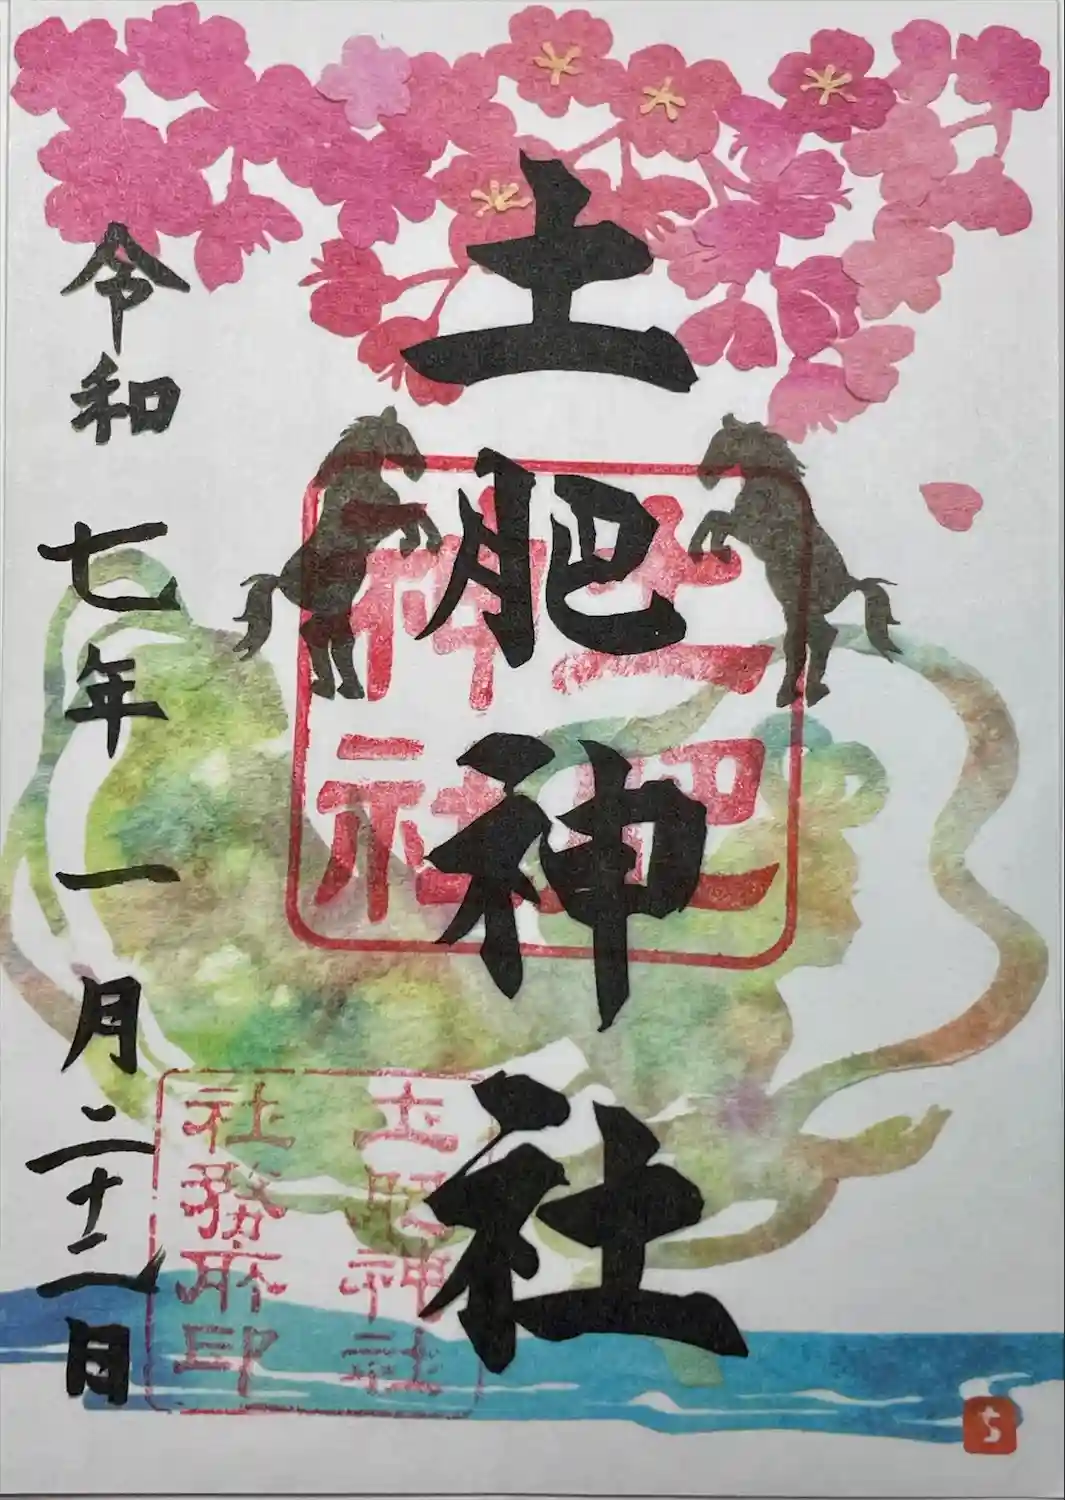 土肥神社
土肥
神社
土肥神社
社務所印
令和七年一月二十二日
ち